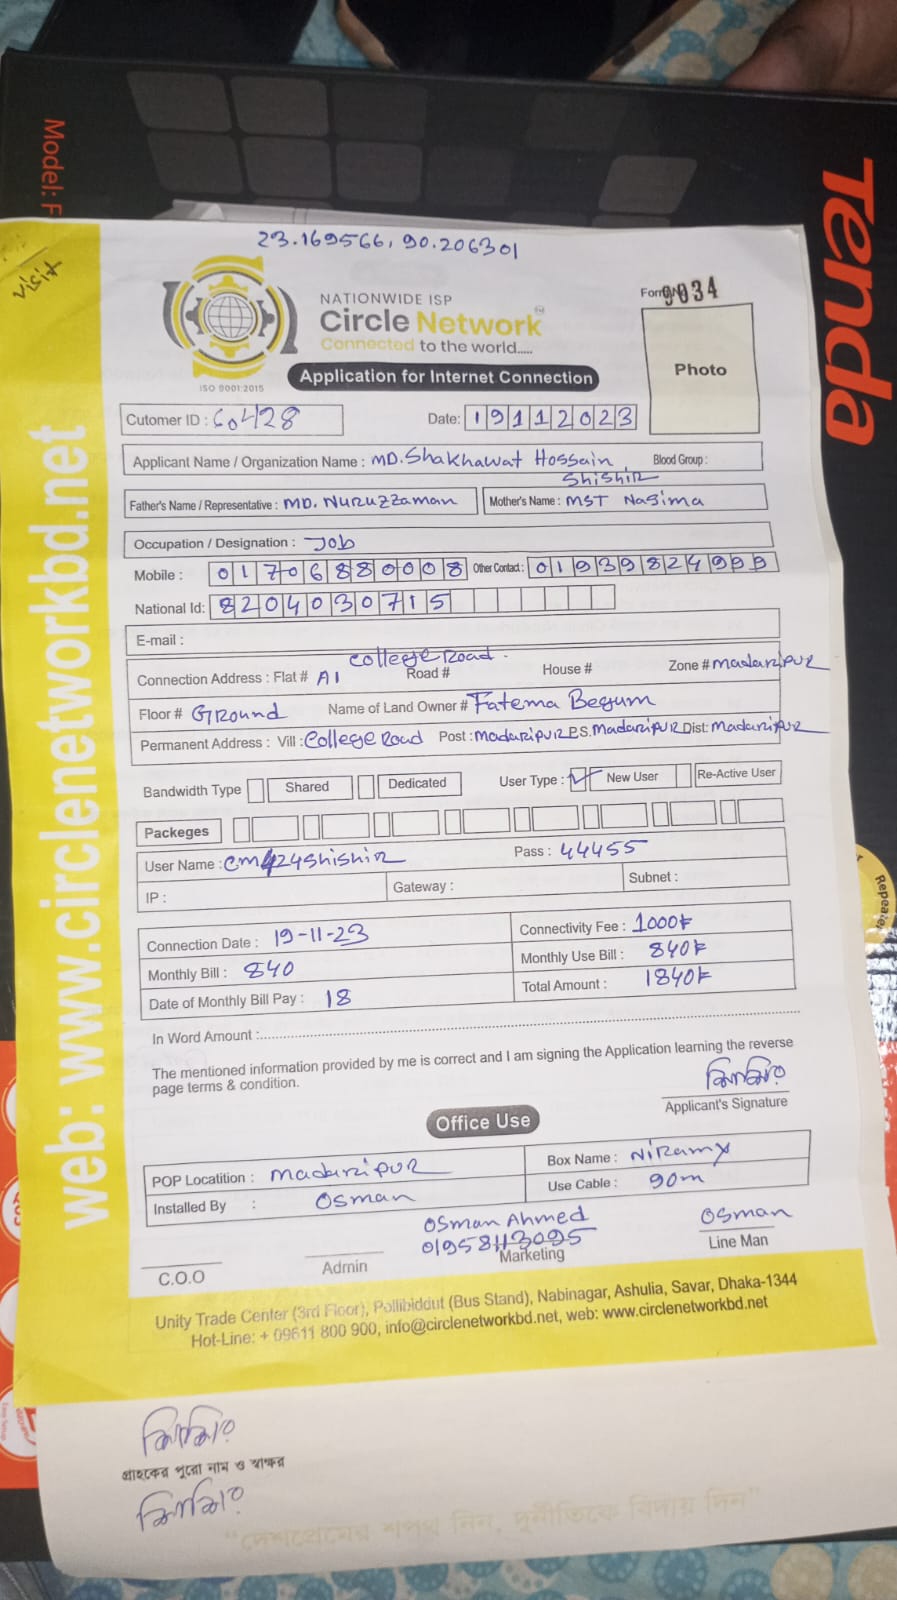 Model: F
Tenda
visit
23.169566, 90.206301
NATIONWIDE ISP
Circle Network
Connected to the world.....
ISO 9001:2015
Form No
9034
Application for Internet Connection
Photo
Cutomer ID : 60428
Date: 19112023
Applicant Name / Organization Name : MD. Shakhawat Hossain Shishir
Blood Group :
Father's Name / Representative : MD. Nuruzzaman
Mother's Name : MST Nasima
Occupation / Designation : Job
Mobile : 01706880008 Other Contact : 01939824999
National Id: 8204030715
E-mail :
Connection Address : Flat # A1 Road # College Road House # Zone # Madaripur
Floor # Ground Name of Land Owner # Fatema Begum
Permanent Address : Vill : College Road Post : Madaripur P.S. Madaripur Dist: Madaripur
Bandwidth Type Shared Dedicated User Type : New User Re-Active User
Packeges
User Name : Pass : 44455
IP : Gateway : Subnet :
Connection Date : 19-11-23 Connectivity Fee : 1000৳
Monthly Bill : 840 Monthly Use Bill : 840৳
Date of Monthly Bill Pay : 18 Total Amount : 1840৳
In Word Amount :
The mentioned information provided by me is correct and I am signing the Application learning the reverse
page terms & condition.
Applicant's Signature
Office Use
POP Locatition : Madaripur Box Name :
Installed By : Osman Use Cable : 90m
Osman Ahmed
Osman
C.O.O Admin Marketing Line Man
Unity Trade Center (3rd Floor), Pollibiddut (Bus Stand), Nabinagar, Ashulia, Savar, Dhaka-1344
Hot-Line: + 09611 800 900, info@circlenetworkbd.net, web: www.circlenetworkbd.net
web: www.circlenetworkbd.net
গ্রাহকের পুরো নাম ও স্বাক্ষর
"দেশপ্রেমের শপথ নিন, দুর্নীতিকে বিদায় দিন"
Repeate